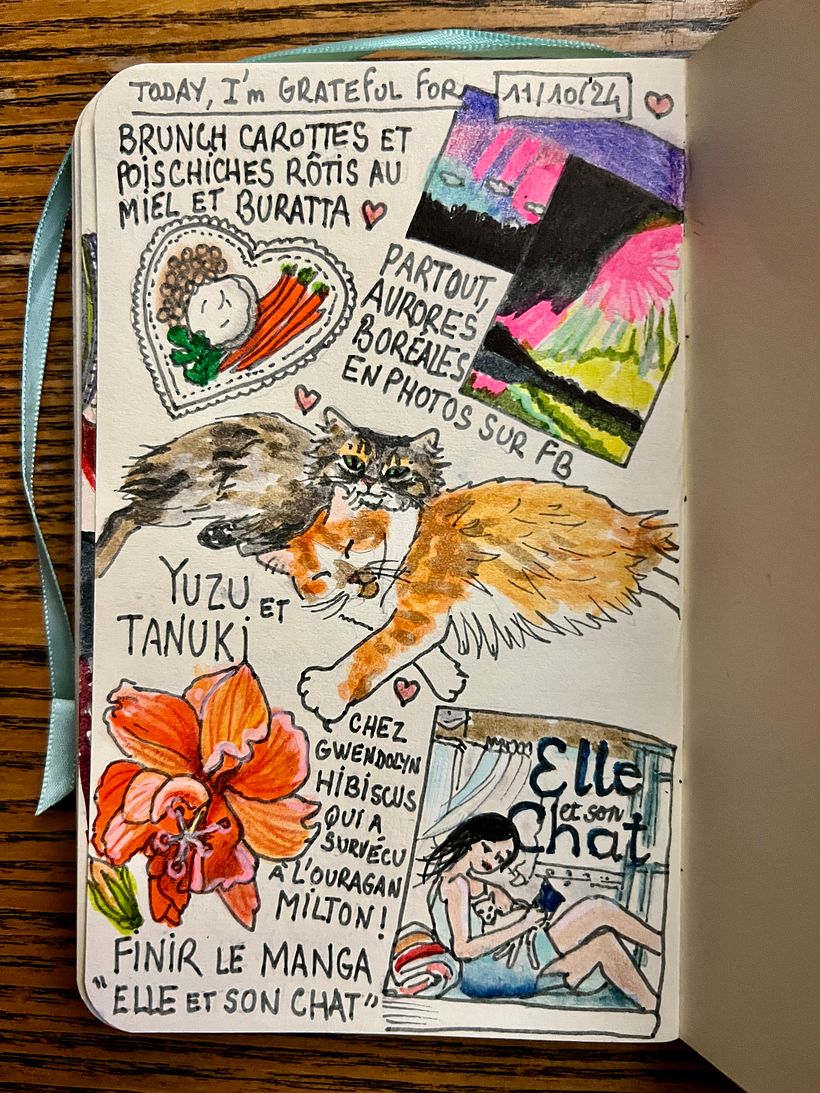 TODAY, I'm GRATEFUL FOR 11/10/24
BRUNCH CAROTTES ET
POIS CHICHES RÔTIS AU
MIEL ET BURATTA
PARTOUT,
AURORES
BORÉALES
EN PHOTOS SUR FB
YUZU ET
TANUKI
CHEZ
GWENDOLYN
HIBISCUS
QUI A
SURVÉCU
À L'OURAGAN
MILTON!
Elle
et son
Chat
FINIR LE MANGA
"ELLE ET SON CHAT"